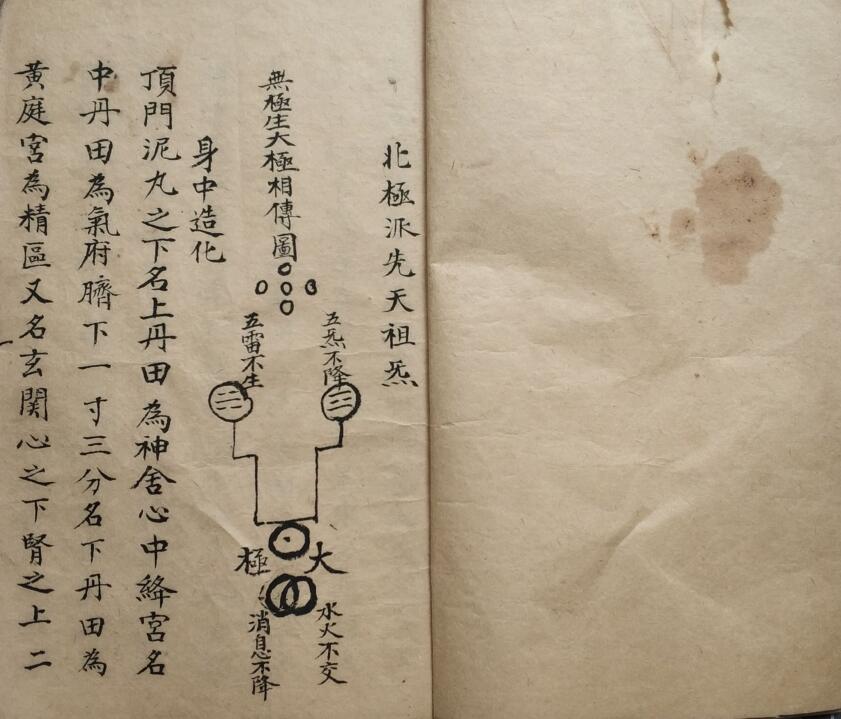 北極派先天祖炁
無極生大極相傳圖
五炁不降
五雷不生
大極
水火不交
消息不降
身中造化
頂門泥丸之下名上丹田為神舍心中絳宮名
中丹田為氣府臍下一寸三分名下丹田為
黃庭宮為精區又名玄関心之下腎之上二